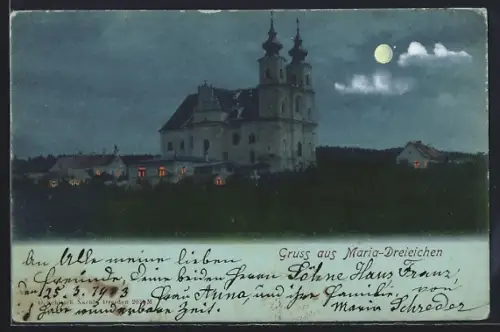 Gruss aus Maria-Dreieichen
An Alle meine lieben
Freunde, Deine beiden Herrn Söhne Hans Franz,
25. 3. 1903 Frau Anna, und ihre Familie, von
habe wunderbare Zeit. Maria Schreder